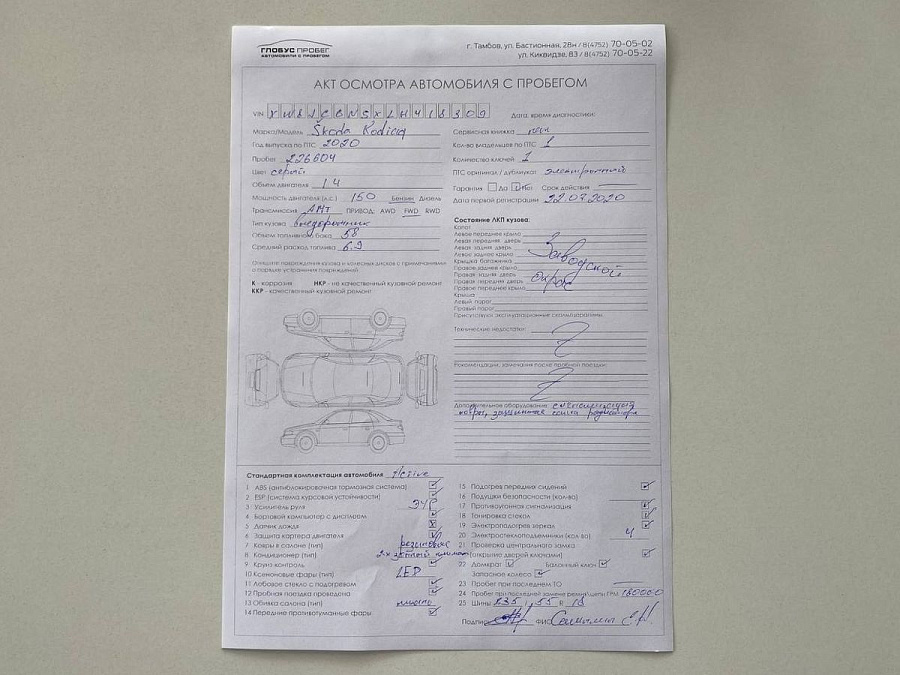 ГЛОБУС ПРОБЕГ
АВТОМОБИЛИ С ПРОБЕГОМ
г. Тамбов, ул. Бастионная, 28н / 8(4752) 70-05-02
ул. Киквидзе, 83 / 8(4752) 70-05-22
АКТ ОСМОТРА АВТОМОБИЛЯ С ПРОБЕГОМ
VIN
Дата, время диагностики:
Марка/Модель Škoda Kodiaq
Год выпуска по ПТС 2020
Пробег 226604
Цвет серый
Объем двигателя 1.4
Мощность двигателя (л.с.) 150 Бензин Дизель
Трансмиссия АМТ ПРИВОД: AWD FWD RWD
Тип кузова внедорожник
Объем топливного бака 58
Средний расход топлива 6.9
Сервисная книжка нет
Кол-во владельцев по ПТС 1
Количество ключей 1
ПТС оригинал / дубликат электронный
Гарантия Да Нет Срок действия
Дата первой регистрации 22.03.2020
Опишите повреждения кузова и колесных дисков с примечаниями
о порядке устранения повреждений
К коррозия НКР - не качественный кузовной ремонт
ККР - качественный кузовной ремонт
Состояние ЛКП кузова:
Капот
Левое переднее крыло
Левая передняя дверь
Левая задняя дверь
Левое заднее крыло
Крышка багажника
Правое заднее крыло
Правая задняя дверь
Правая передняя дверь
Правое переднее крыло
Крыша
Левый порог
Правый порог
Заводской
окрас
Присутствуют эксплуатационные сколы/царапины
Технические недостатки:
Рекомендации, замечания после пробной поездки:
Дополнительное оборудование сигнализация
ковры, защитная сетка радиатора
Стандартная комплектация автомобиля Active
1 ABS (антиблокировочная тормозная система)
2 ESP (система курсовой устойчивости)
3 Усилитель руля ЭУР
4 Бортовой компьютер с дисплеем
5 Датчик дождя
6 Защита картера двигателя
7 Ковры в салоне (тип) резиновые
8 Кондиционер (тип) 2х зонный климат
9 Круиз контроль
10 Ксеноновые фары (тип) LED
11 Лобовое стекло с подогревом
12 Пробная поездка проведена
13 Обивка салона (тип)
14 Передние противотуманные фары
15 Подогрев передних сидений
16 Подушки безопасности (кол-во)
17 Противоугонная сигнализация
18 Тонировка стекол
19 Электроподогрев зеркал
20 Электростеклоподъемники (кол-во) 4
21 Проверка центрального замка
(открытие дверей ключами)
22 Домкрат Балонный ключ
Запасное колесо
23 Пробег при последнем ТО
24 Пробег при последней замене ремня/цепи ГРМ 180000
25 Шины 235 / 55 R 18
Подпись ФИО